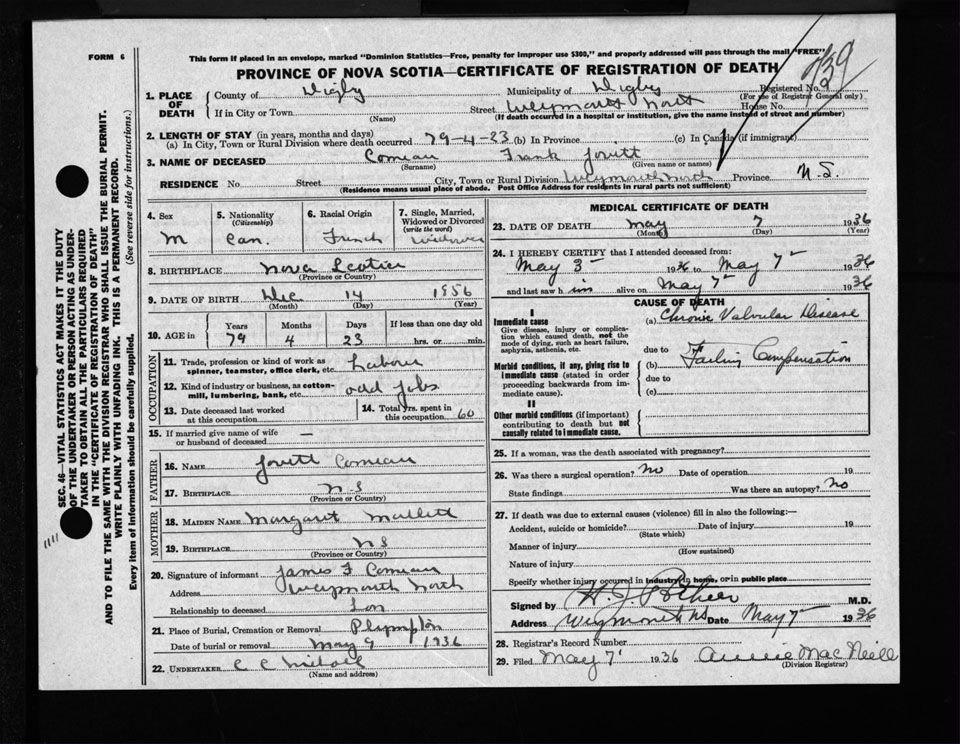 FORM 6
This form if placed in an envelope, marked "Dominion Statistics—Free, penalty for improper use $300," and properly addressed will pass through the mail "FREE"
PROVINCE OF NOVA SCOTIA—CERTIFICATE OF REGISTRATION OF DEATH
139
1. PLACE OF DEATH
County of Digby Municipality of Digby Registered No.
(For use of Registrar General only)
If in City or Town Street Weymouth North House No.
(Name) (If death occurred in a hospital or institution, give the name instead of street and number)
2. LENGTH OF STAY (in years, months and days)
(a) In City, Town or Rural Division where death occurred 79-4-23 (b) In Province (c) In Canada (if immigrant)
3. NAME OF DECEASED Comeau Frank Jovitt
(Surname) (Given name or names)
RESIDENCE No. Street City, Town or Rural Division Weymouth North Province N.S.
(Residence means usual place of abode. Post Office Address for residents in rural parts not sufficient)
4. Sex M
5. Nationality (Citizenship) Can.
6. Racial Origin French
7. Single, Married, Widowed or Divorced (write the word) Widower
8. BIRTHPLACE Nova Scotia
(Province or Country)
9. DATE OF BIRTH Dec 14 1956
(Month) (Day) (Year)
10. AGE in Years Months Days If less than one day old
79 4 23 hrs. or min.
OCCUPATION
11. Trade, profession or kind of work as spinner, teamster, office clerk, etc. Labour
12. Kind of industry or business, as cotton-mill, lumbering, bank, etc. odd jobs
13. Date deceased last worked at this occupation
14. Total yrs. spent in this occupation 60
15. If married give name of wife or husband of deceased —
FATHER
16. NAME Jovitt Comeau
17. BIRTHPLACE N.S
(Province or Country)
MOTHER
18. MAIDEN NAME Margaret Mallett
19. BIRTHPLACE NS
(Province or Country)
20. Signature of informant James F Comeau
Address Weymouth North
Relationship to deceased Son
21. Place of Burial, Cremation or Removal Plympton
Date of burial or removal May 9 1936
22. UNDERTAKER C C
(Name and address)
MEDICAL CERTIFICATE OF DEATH
23. DATE OF DEATH May 7 1936
(Month) (Day) (Year)
24. I HEREBY CERTIFY that I attended deceased from:
May 3 1936 to May 7 1936
and last saw him alive on May 7 1936
CAUSE OF DEATH
I
Immediate cause
Give disease, injury or complication which caused death, not the mode of dying, such as heart failure, asphyxia, asthenia, etc.
(a) Chronic Valvular Disease
due to
Morbid conditions, if any, giving rise to immediate cause (stated in order proceeding backwards from immediate cause).
(b) Failing Compensation
due to
(c)
II
Other morbid conditions (if important) contributing to death but not causally related to immediate cause.
25. If a woman, was the death associated with pregnancy?
26. Was there a surgical operation? No Date of operation 19
State findings Was there an autopsy? No
27. If death was due to external causes (violence) fill in also the following:—
Accident, suicide or homicide? Date of injury 19
(State which)
Manner of injury
(How sustained)
Nature of injury
Specify whether injury occurred in industry, in home, or in public place
Signed by H. J. Pothier M.D.
Address Weymouth NS Date May 7 1936
28. Registrar's Record Number
29. Filed May 7 1936 Annie MacNeill
(Division Registrar)
SEC. 46—VITAL STATISTICS ACT MAKES IT THE DUTY
OF THE UNDERTAKER OR PERSON ACTING AS UNDER-
TAKER TO OBTAIN ALL THE PARTICULARS REQUIRED
IN THE "CERTIFICATE OF REGISTRATION OF DEATH"
AND TO FILE THE SAME WITH THE DIVISION REGISTRAR WHO SHALL ISSUE THE BURIAL PERMIT.
WRITE PLAINLY WITH UNFADING INK. THIS IS A PERMANENT RECORD.
Every item of information should be carefully supplied. (See reverse side for instructions.)